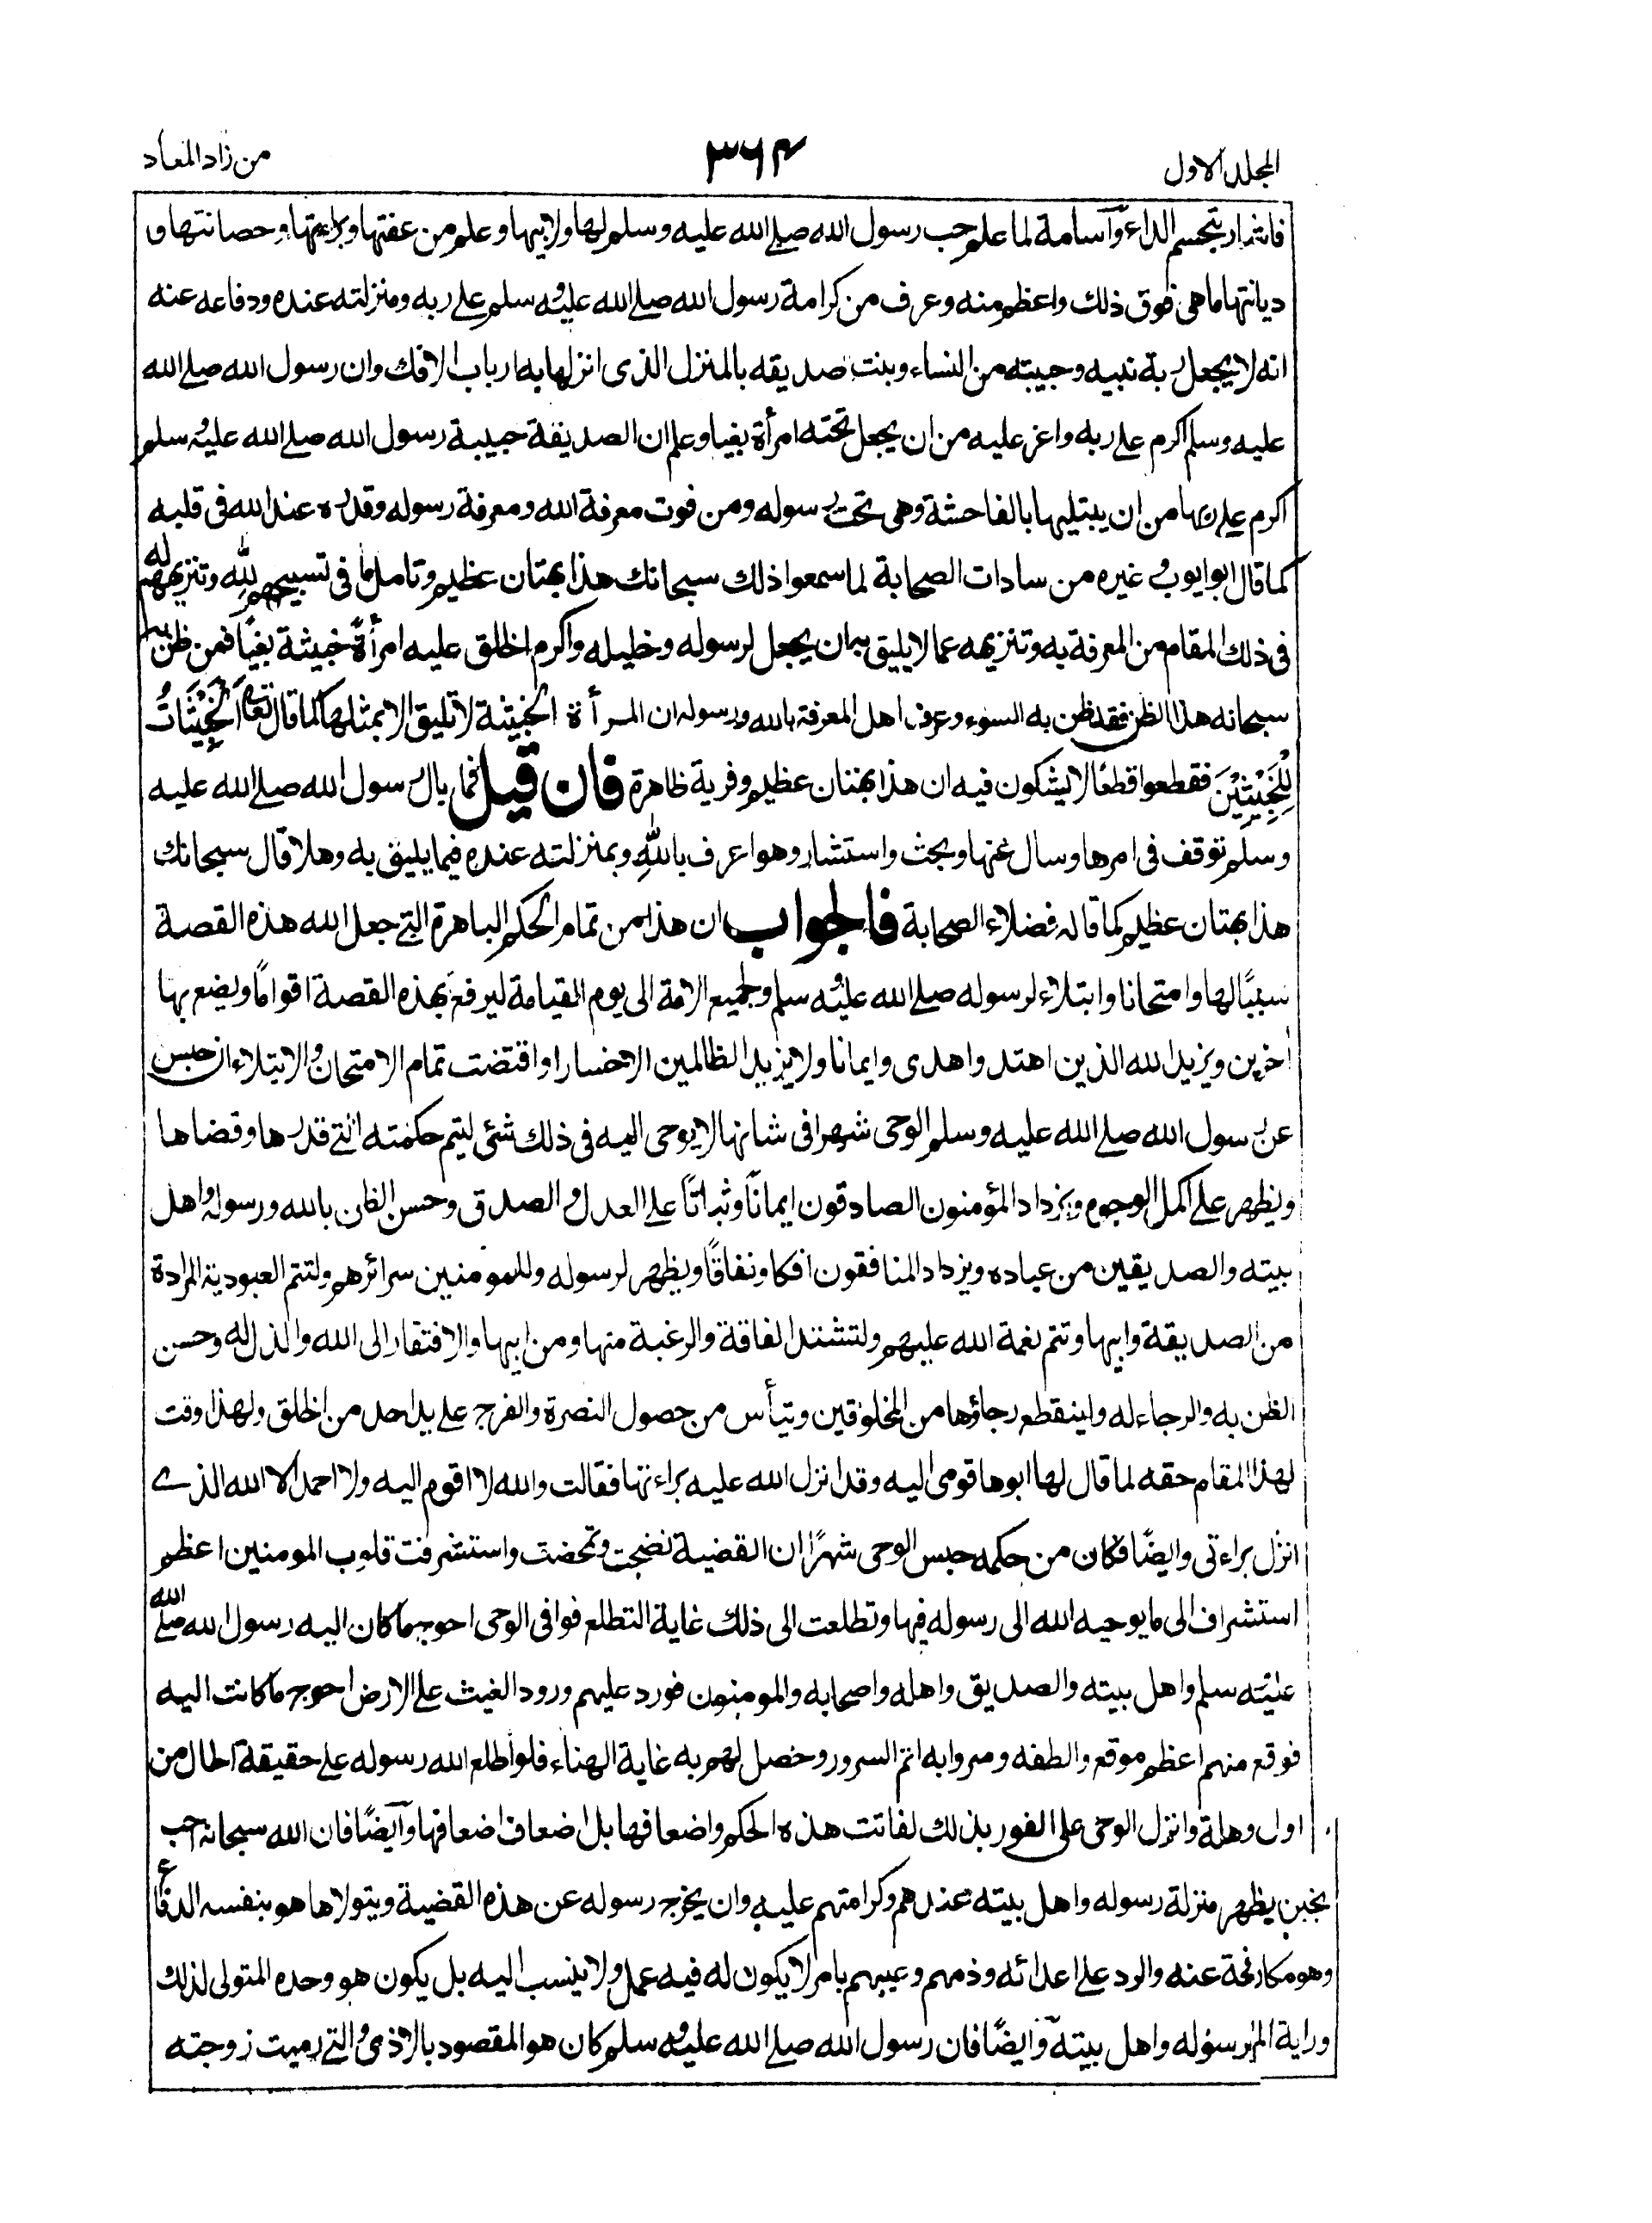 المجلد الاول
٣٦٤
من زاد المعاد
فاشار بتحسم الداء وأسامة لما علم حب رسول الله صلے الله عليه وسلم لها ولابيها وعلم من عفتها وبراءتها وحصانتها و
ديانتها ما هى فوق ذلك واعظم منه وعرف من كرامة رسول الله صلے الله عليه وسلم علے ربه ومنزلته عنده ودفاعه عنه
انه لا يجعل ربة نبيه وحبيبته من النساء وبنت صديقه بالمنزل الذى انزلها به ارباب الافك وان رسول الله صلے الله
عليه وسلم اكرم علے ربه واعز عليه من ان يجعل تحته امرأة بغيا وعلم ان الصديقة حبيبة رسول الله صلے الله عليه وسلم
اكرم علے ربها من ان يبتليها بالفاحشة وهى تحت رسوله ومن قوت معرفة الله ومعرفة رسوله وقدره عند الله فى قلبه
كما قال ابو ايوب وغيره من سادات الصحابة لما سمعوا ذلك سبحانك هذا بهتان عظيم وتامل ما فى تسبيحهم لله وتنزيههم له
فى ذلك المقام من المعرفة به وتنزيهه عما لا يليق به ان يجعل لرسوله وخليله واكرم الخلق عليه امرأةً خبيثة بغيًا فمن ظن به
سبحانه هذا الظن فقد ظن به السوء وعرف اهل المعرفة بالله ورسوله ان المرأة الخبيثة لا تليق الا بمثلها كما قال تعالے اَلْخَبِيْثَاتُ
لِلْخَبِيْثِيْنَ فقطعوا قطعًا لا يشكون فيه ان هذا بهتان عظيم وفرية ظاهرة فان قيل فما بال رسول الله صلے الله عليه
وسلم توقف فى امرها وسال عنها وبحث واستشار وهو اعرف باللهِ وبمنزلته عنده فيما يليق به وهلا قال سبحانك
هذا بهتان عظيم كما قاله فضلاء الصحابة فالجواب ان هذا من تمام الحكم الباهرة التے جعل الله هذه القصة
سببًا لها وامتحانا وابتلاء لرسوله صلے الله عليه وسلم ولجميع الامة الى يوم القيامة ليرفع بهذه القصة اقوامًا ويضع بها
اخرين ويزيد الله الذين اهتدوا هدى وايمانا ولا يزيد الظالمين الا خسارا واقتضت تمام الامتحان والابتلاء ان حبس
عن رسول الله صلے الله عليه وسلم الوحى شهرا فى شانها لا يوحى اليه فى ذلك شئى ليتم حكمته التے قدرها وقضاها
ويظهر علے اكمل الوجوه ويزداد المؤمنون الصادقون ايمانًا وثباتًا علے العدل والصدق وحسن الظن بالله ورسوله واهل
بيته والصديقين من عباده ويزداد المنافقون افكا ونفاقًا ويظهر لرسوله وللمومنين سرائرهم ولتتم العبودية المرادة
من الصديقة وابيها وتتم نعمة الله عليهم ولتشتد الفاقة والرغبة منها ومن ابيها والافتقار الى الله والذل له وحسن
الظن به والرجاء له ولينقطع رجاؤها من المخلوقين وتيأس من حصول النصرة والفرج علے يد احد من الخلق ولهذا وفت
لهذا المقام حقه لما قال لها ابوها قومى اليه وقد انزل الله عليه براءتها فقالت والله لا اقوم اليه ولا احمد الا الله الذے
انزل براءتى وايضًا فكان من حكمه حبس الوحى شهرًا ان القضية نضجت وتمحضت واستشرفت قلوب المومنين اعظم
استشراف الى ما يوحيه الله الى رسوله فيها وتطلعت الى ذلك غاية التطلع فوافى الوحى احوج ما كان اليه رسول الله صلے الله
عليه وسلم واهل بيته والصديق واهله واصحابه والمومنون فورد عليهم ورود الغيث علے الارض احوج ما كانت اليه
فوقع منهم اعظم موقع والطفه وسروا به اتم السرور وحصل لهم به غاية الهناء فلو اطلع الله رسوله علے حقيقة الحال من
اول وهلة وانزل الوحى على الفور بذلك لفاتت هذه الحكم واضعافها بل اضعاف اضعافها وآيضًا فان الله سبحانه احب
بحبن يظهر منزلة رسوله واهل بيته عندهم وكرامتهم عليه وان يخرج رسوله عن هذه القضية ويتولاها هو بنفسه الدفاع
وهو مكارفحة عنه والرد علے اعدائه وذمهم وعيبهم بامر لا يكون له فيه عمل ولا ينسب اليه بل يكون هو وحده المتولى لذلك
وراية المرسوله واهل بيته وآيضًا فان رسول الله صلے الله عليه وسلم كان هو المقصود بالاذى والتے رميت زوجته